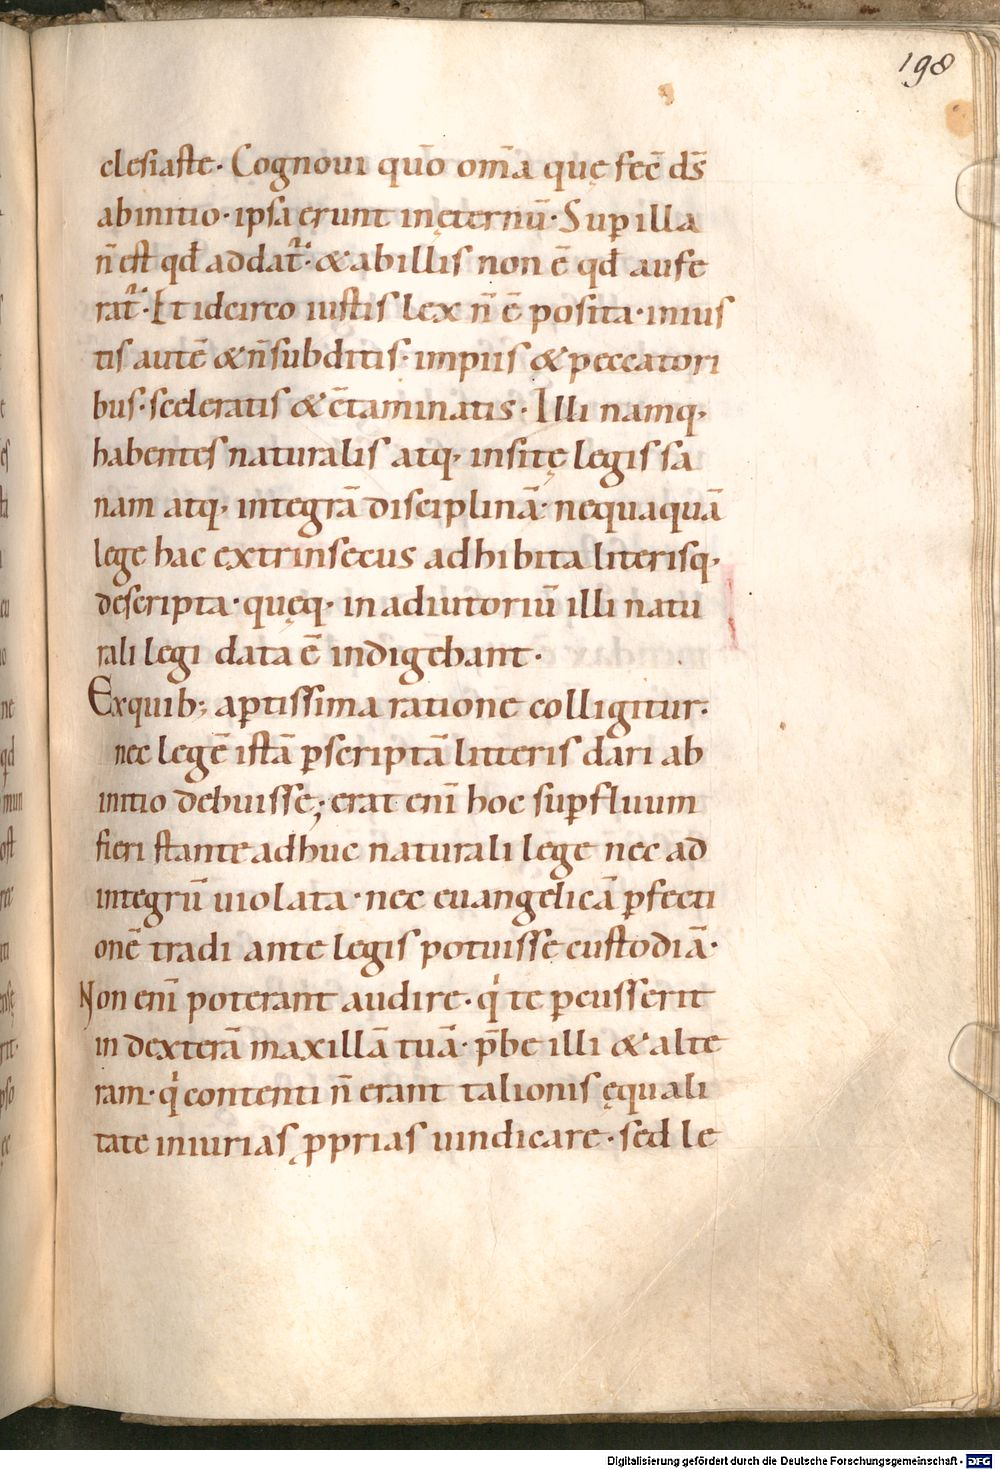 198
clesiaste. Cognoui quō om̄a quę fec̄ ds̄
ab initio. ipsa erunt in ęternū. Sup illa
n̄ est qd̄ addat᷑. & ab illis non ē qd̄ aufe
rat᷑. Et idcirco iustis lex n̄ ē posita. inius
tis autē & n̄ subditis. impiis & peccatori
bus. sceleratis & c̄taminatis. Illi namq.
habentes naturalis atq. insitę legis sa
nam atq. integrā disciplinā. nequaquā
lege hac extrinsecus adhibita literisq.
descripta. quęq. in adiutoriū illi natu
rali legi data ē indigebant.
Ex quib; aptissima ratione colligitur.
nec legē istā pscriptā litteris dari ab
initio debuisse; erat enī hoc supfluum
fieri stante adhuc naturali lege nec ad
integrū uiolata. nec euangelicā pfecti
onē tradi ante legis potuisse custodiā.
Non enī poterant audire. qi te pcusserit
in dexterā maxillā tuā. p̄be illi & alte
ram. qi contenti n̄ erant talionis ęquali
tate iniurias pprias uindicare. sed le
Digitalisierung gefördert durch die Deutsche Forschungsgemeinschaft - DFG